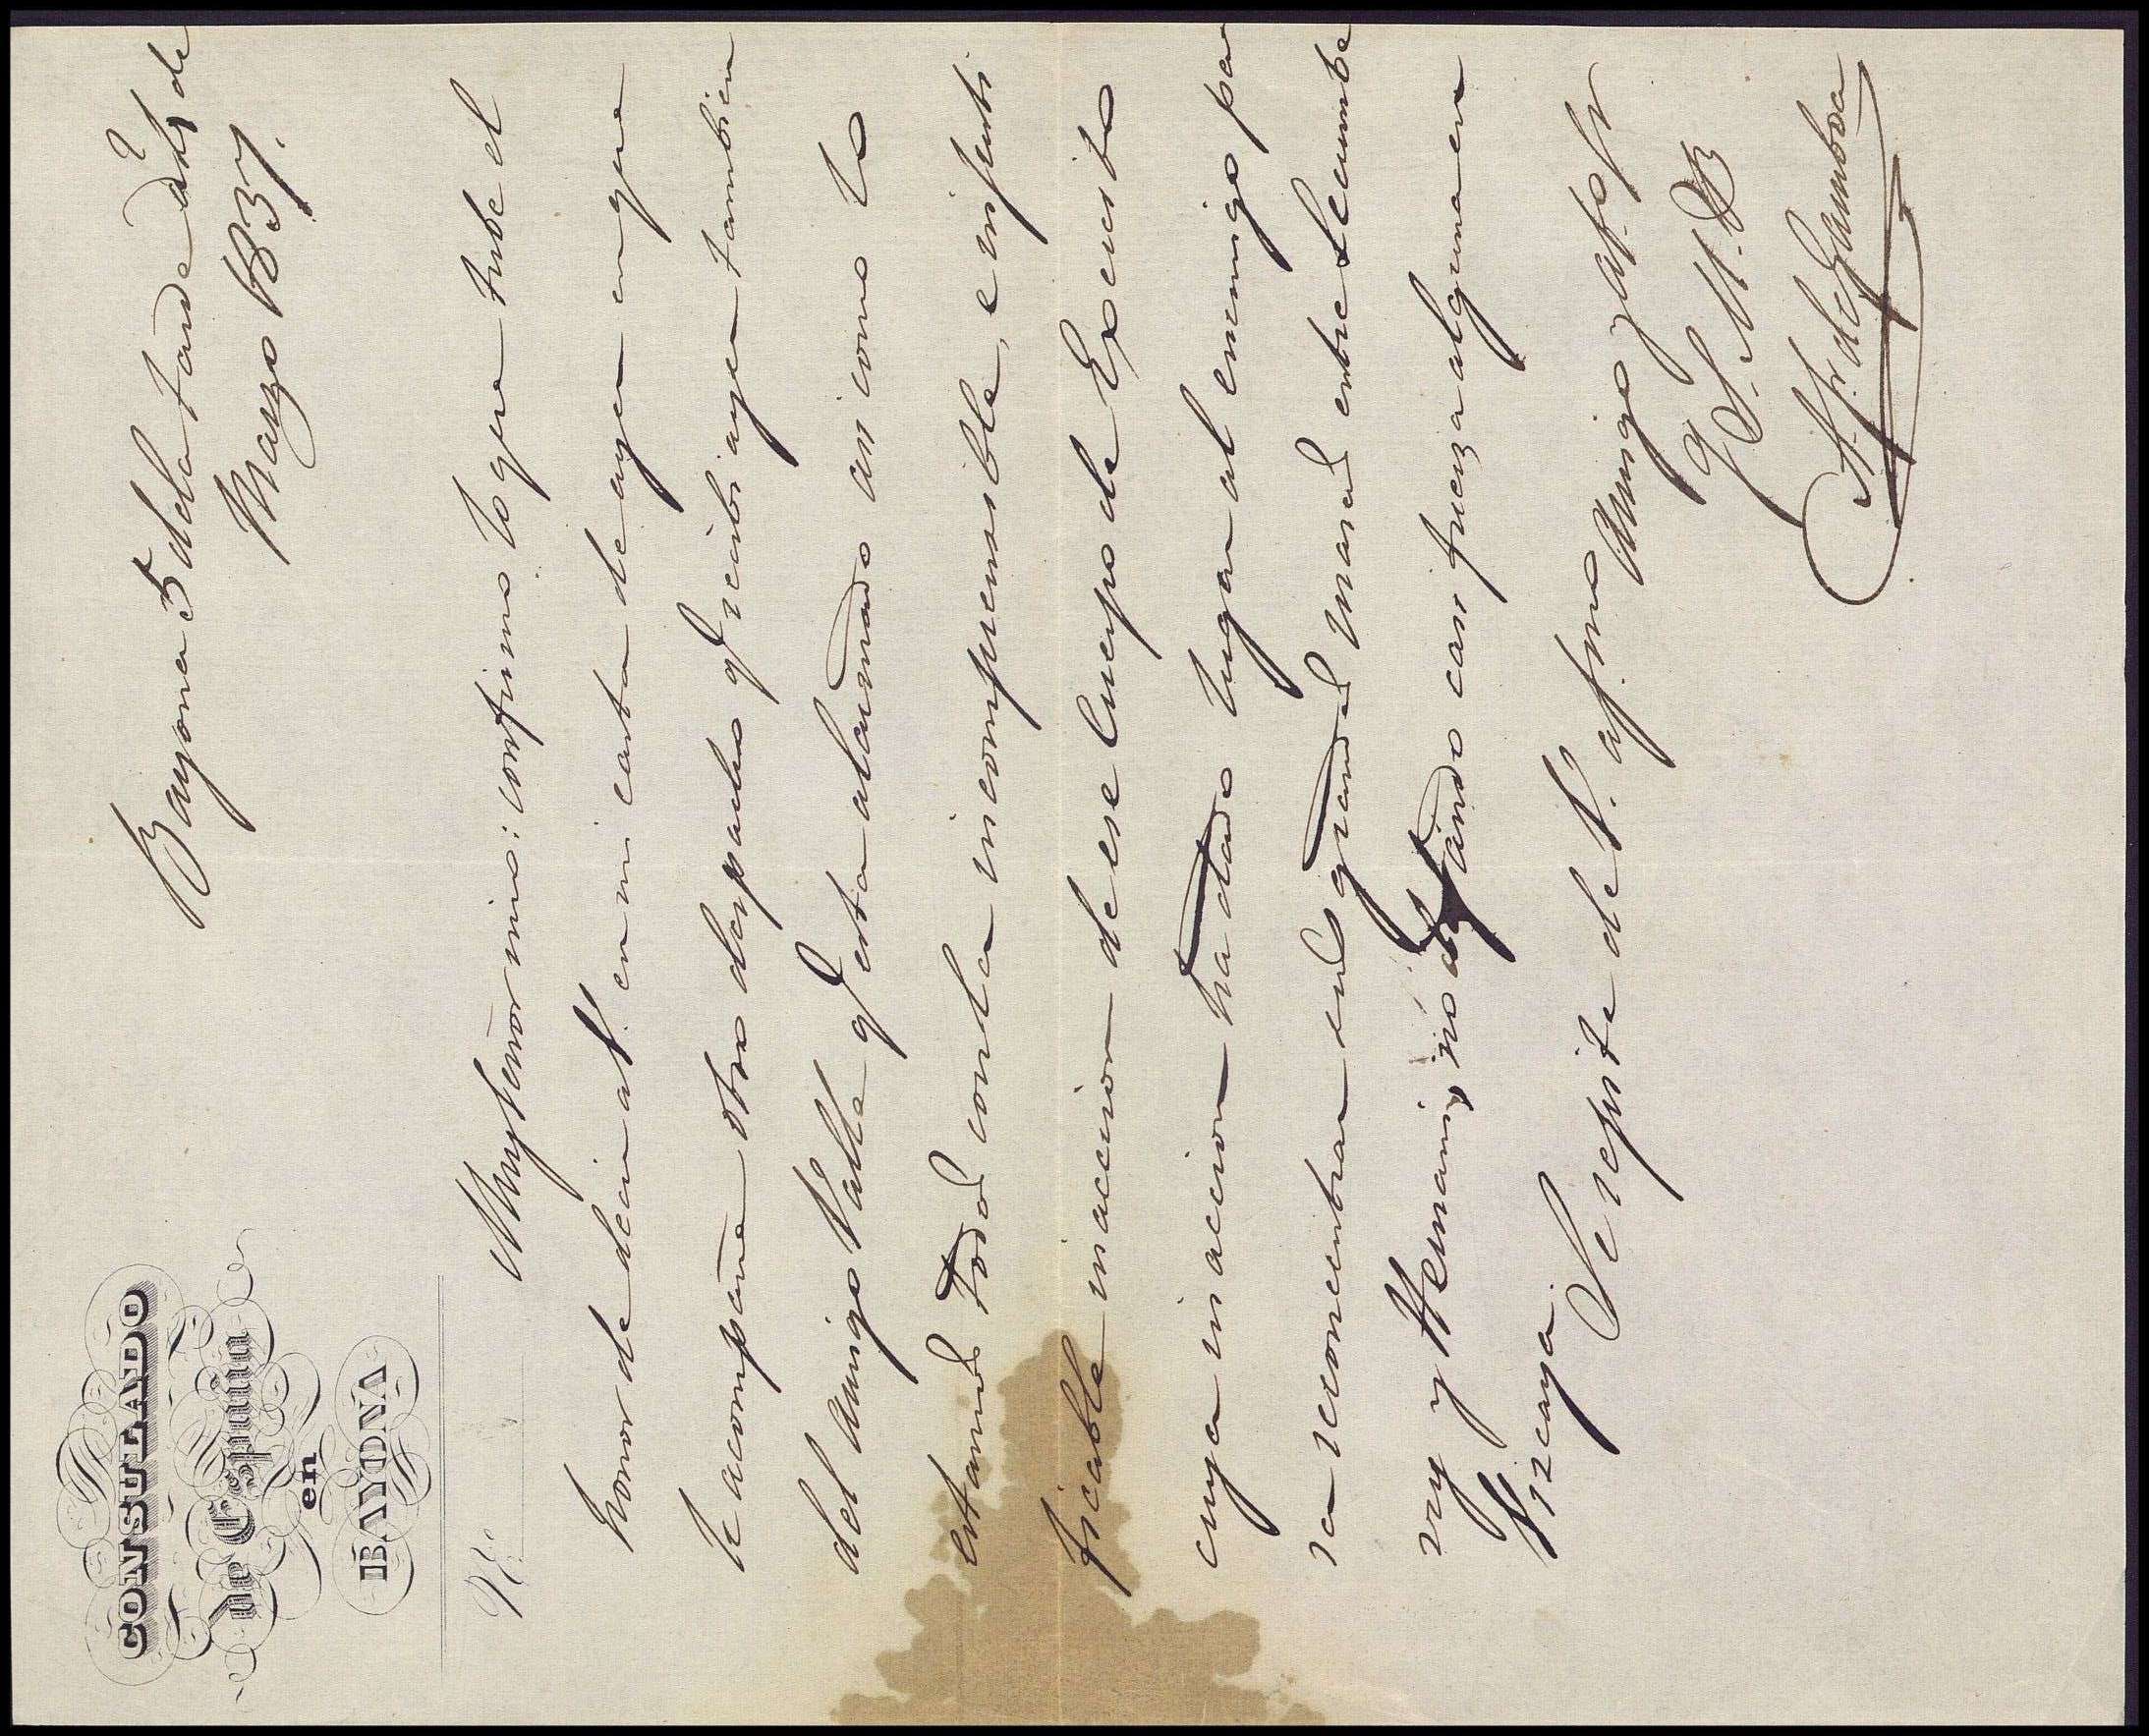 CONSULADO
De España
en
BAYONA
N.º
Bayona 5 de la tarde de
Marzo 1837.
Muy Señor mio: confirmo lo que tube el
honor de decir a V. en mi carta de ayer en que
le acompañe otro despacho q recibi ayer tambien
del Amigo Valle q esta alarmado asi como lo
estamos todos con la incomprensible, e injusti
ficable inaccion de ese Cuerpo de Exercito
cuya inaccion ha dado lugar al enemigo pa
ra reconcentrar sus grandes masas entre Lecumbe
rry y Hernani, no dejando casi fuerza alguna en
Vizcaya.
Se repite de V. afmo Amigo y at.º Sr
Q. S. M. B.
A. F. de Gamboa